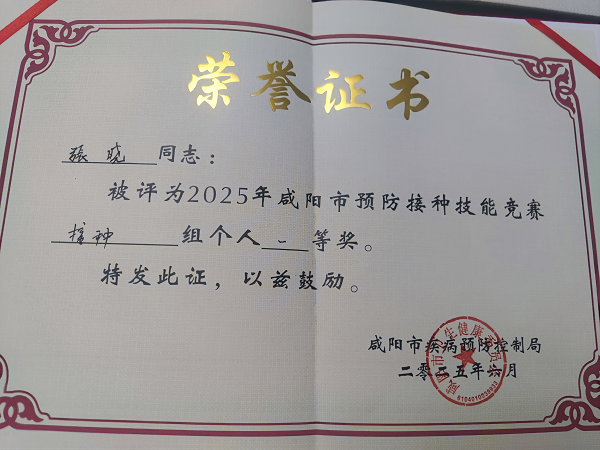 荣誉证书
張晓 同志：
被评为2025年咸阳市预防接种技能竞赛
接种 组个人 一 等奖。
特发此证，以兹鼓励。
咸阳市疾病预防控制局
二零二五年六月